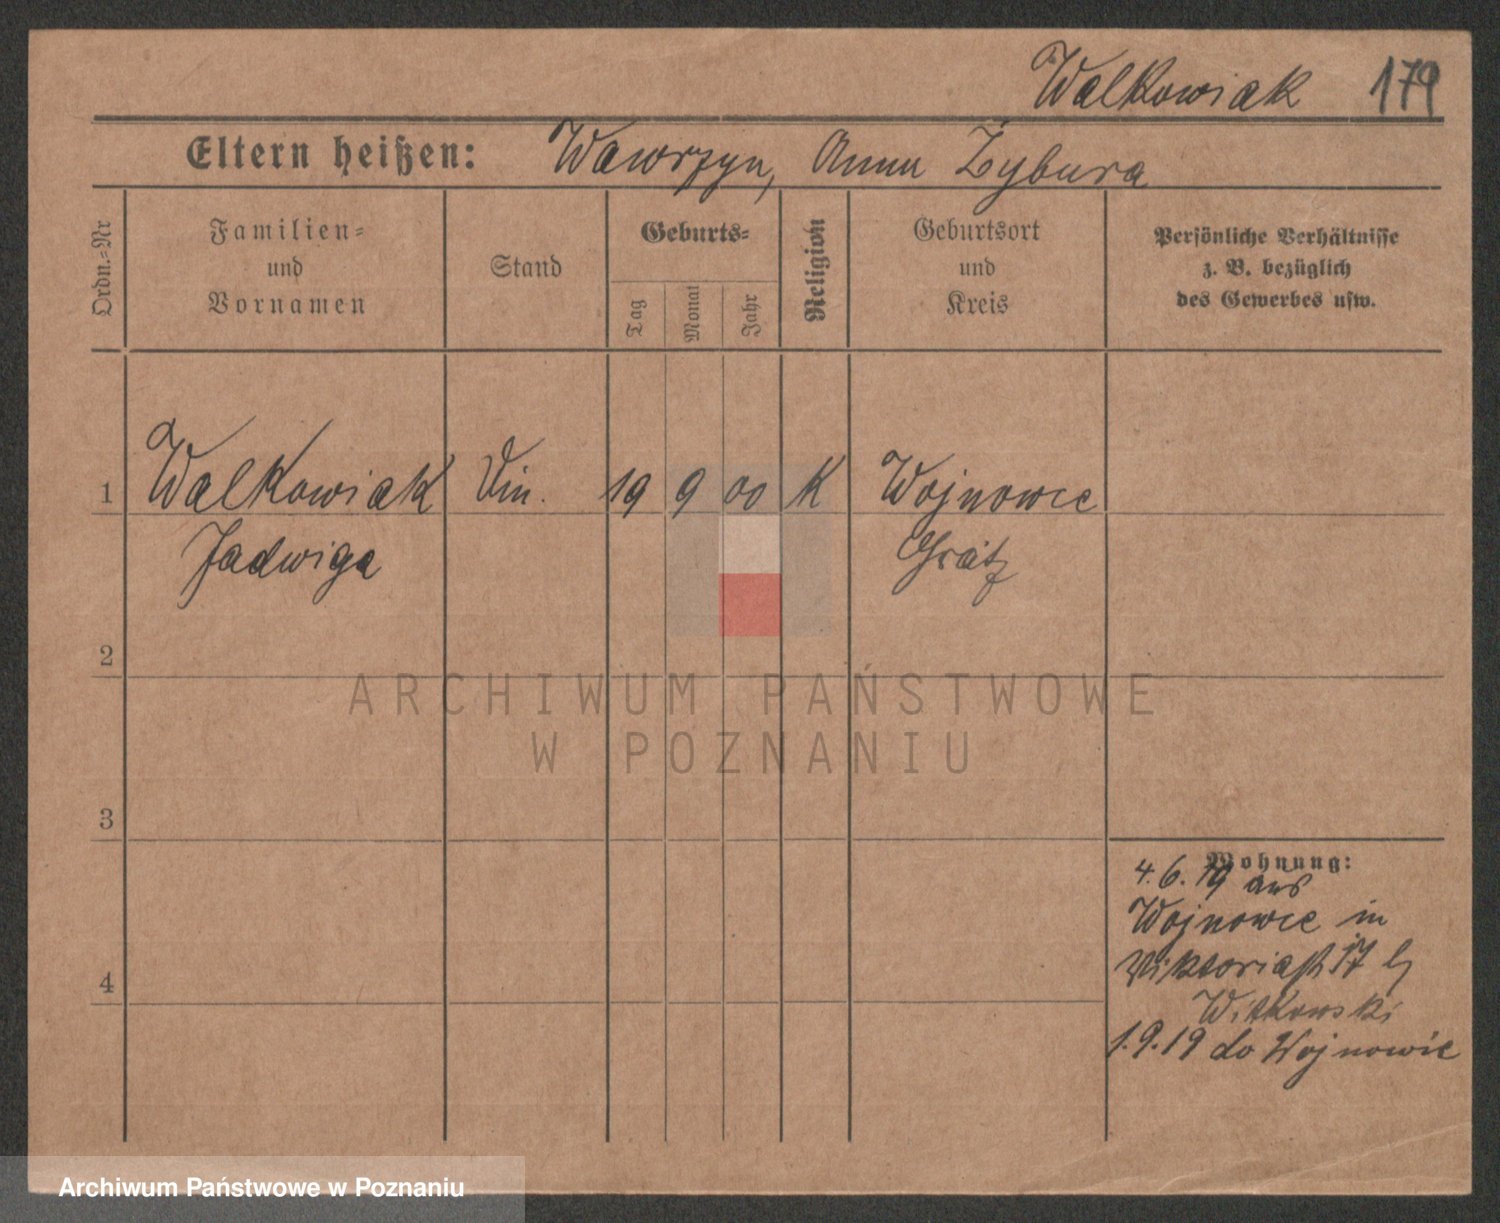 Walkowiak 179
Eltern heißen: Wawrzyn, Anna Żybura
Ordn.=Nr
Familien=
und
Vornamen
Stand
Geburts=
Tag
Monat
Jahr
Religion
Geburtsort
und
Kreis
Persönliche Verhältnisse
z. B. bezüglich
des Gewerbes usw.
1 Walkowiak 19 9 00 K Wojnowce
Jadwiga Grätz
2
ARCHIWUM PAŃSTWOWE
W POZNANIU
3
Wohnung:
4.6.19 aus
Wojnowce in
Viktoriastr 17 b/
4
Witkowski
1.9.19 do Wojnowic
Archiwum Państwowe w Poznaniu